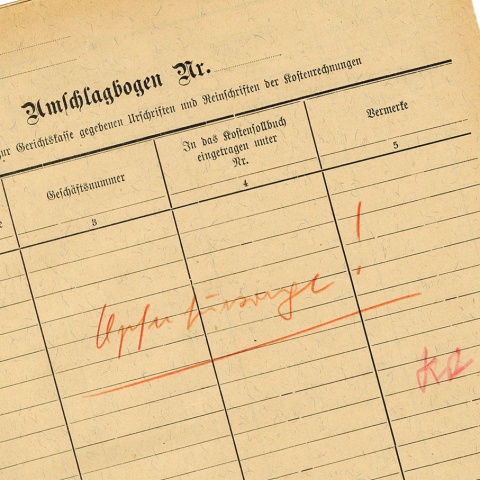 Umschlagbogen Nr.
zur Gerichtskasse gegebenen Urschriften und Reinschriften der Kostenrechnungen
Geschäftsnummer
In das Kostensollbuch
eingetragen unter
Nr.
Vermerke
3
4
5
Opferfürsorge!